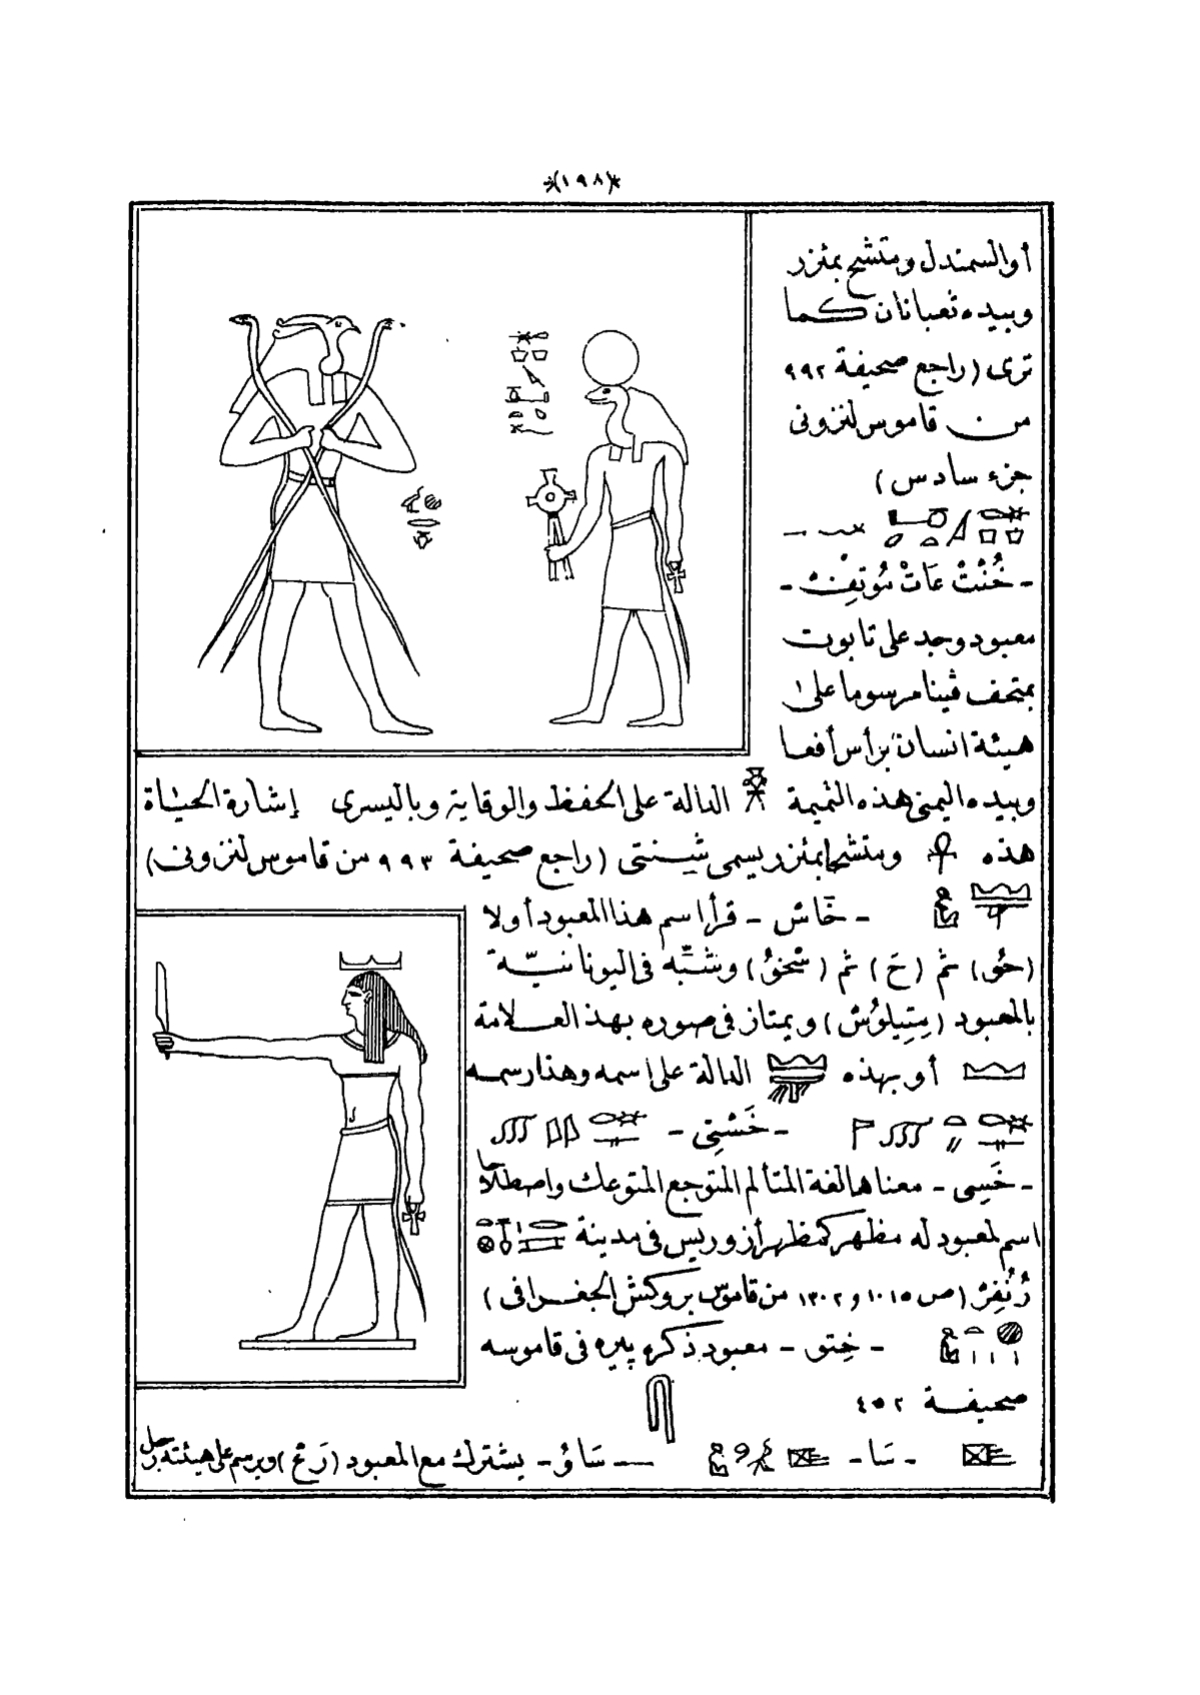 *(١٩٨)*
أو السمندل ومتشح بمئزر
وبيده ثعبانان كما
ترى (راجع صحيفة ٩٩٢
من قاموس لنزونى
جزء سادس)
- خُنْتْ عَاتْ سُوتِفِنْ -
معبود وجد على تابوت
بمتحف ڤينا مرسوما على
هيئة انسان برأس أفعا
وبيده اليمنى هذه التميمة الدالة على الحفظ والوقاية وباليسرى إشارة الحياة
هذه ومتشحا بمئزر يسمى شينتى (راجع صحيفة ٩٩٣ من قاموس لنزونى)
- خَاش - قرأ اسم هذا المعبود أولا
(حُو) ثم (حَ) ثم (سْخُ) وشبّه فى اليونانيّة
بالمعبود (مِتِيلُوسْ) ويمتاز فى صوره بهذ العلامة
أو بهذه الدالة على اسمه وهذا رسمه
- خَسْتِى -
- خَسِى - معناها لغة المتألم المتوجع المتوعك واصطلاحا
اسم لمعبود له مظهر كمظهر أزوريس فى مدينة
رُنُفِرْ (ص ١٠١٥ و ١٣٠٢ من قاموس بروكش الجغرافى)
- خِتو - معبود ذكره پيره فى قاموسه
صحيفة ٤٥٢
- سَا - - سَاوُ - يشترك مع المعبود (رَعْ) ويرسم على هيئته برجل